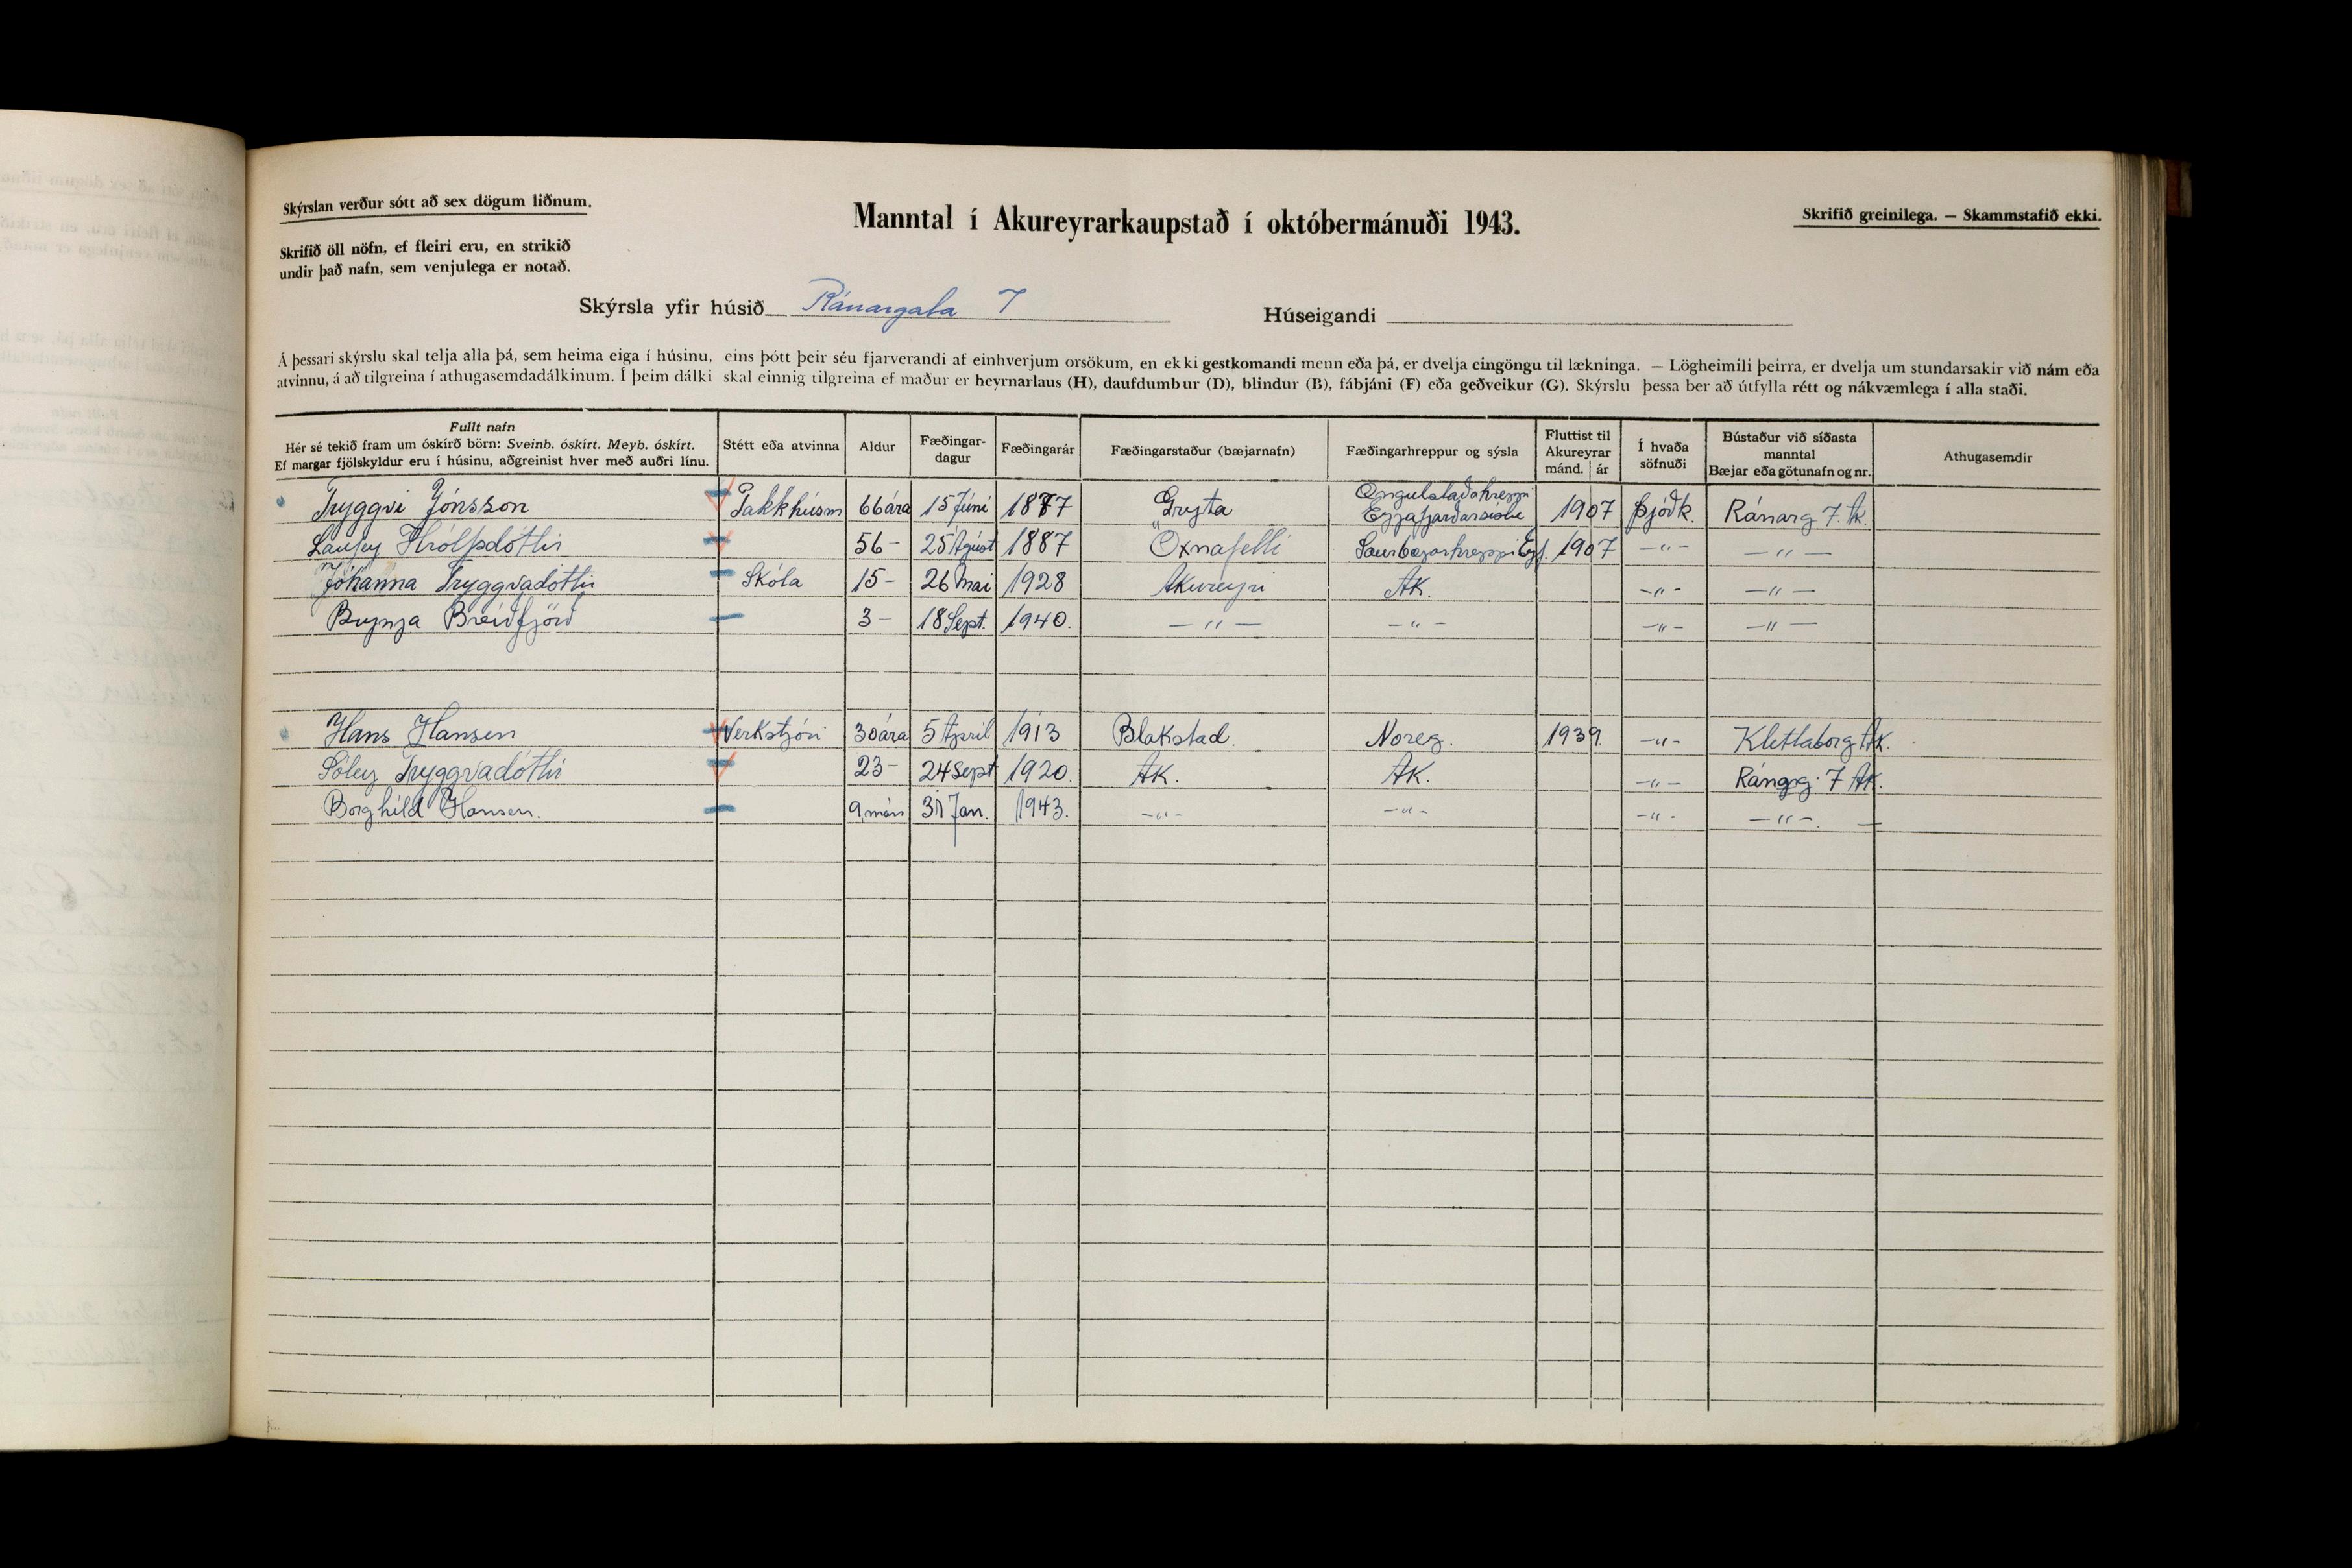 Skýrslan verður sótt að sex dögum liðnum.
Manntal í Akureyrarkaupstað í októbermánuði 1943.
Skrifið greinilega. — Skammstafið ekki.
Skrifið öll nöfn, ef fleiri eru, en strikið
undir það nafn, sem venjulega er notað.
Skýrsla yfir húsið Ránargata 7 Húseigandi
Á þessari skýrslu skal telja alla þá, sem heima eiga í húsinu, eins þótt þeir séu fjarverandi af einhverjum orsökum, en ekki gestkomandi menn eða þá, er dvelja eingöngu til lækninga. — Lögheimili þeirra, er dvelja um stundarsakir við nám eða
atvinnu, á að tilgreina í athugasemdadálkinum. Í þeim dálki skal einnig tilgreina ef maður er heyrnarlaus (H), daufdumbur (D), blindur (B), fábjáni (F) eða geðveikur (G). Skýrslu þessa ber að útfylla rétt og nákvæmlega í alla staði.
Fullt nafn
Hér sé tekið fram um óskírð börn: Sveinb. óskírt. Meyb. óskírt.
Ef margar fjölskyldur eru í húsinu, aðgreinist hver með auðri línu.
Stétt eða atvinna
Aldur
Fæðingar-
dagur
Fæðingarár
Fæðingarstaður (bæjarnafn)
Fæðingarhreppur og sýsla
Fluttist til
Akureyrar
mánd. ár
Í hvaða
söfnuði
Bústaður við síðasta
manntal
Bæjar eða götunafn og nr.
Athugasemdir
Tryggvi Jónsson Pakkhúsm 66 ára 15 Júní 1877 Gryta Öngulstaðahreppi Eyjafjarðarsíslu 1907 Þjóðk. Ránarg 7. Ak.
Laufey Hrólfsdóttir 56 - 25 Ágúst 1887 Öxnafelli Saurbæjarhreppi Eyf. 1907 -"- -"-
Jóhanna Tryggvadóttir Skóla 15 - 26 Mai 1928 Akureyri AK. -"- -"-
Brynja Breiðfjörð 3 - 18 Sept. 1940. -"- -"- -"- -"-
Hans Hansen Verkstjóri 30 ára 5 Apríl 1913 Blakstad. Noreg. 1939. -"- Klettaborg Ak.
Sóley Tryggvadóttir 23 - 24 Sept 1920. AK. AK. -"- Ránarg. 7 Ak.
Borghild Hansen. 9 mán 31 Jan. 1943. -"- -"- -"- -"-